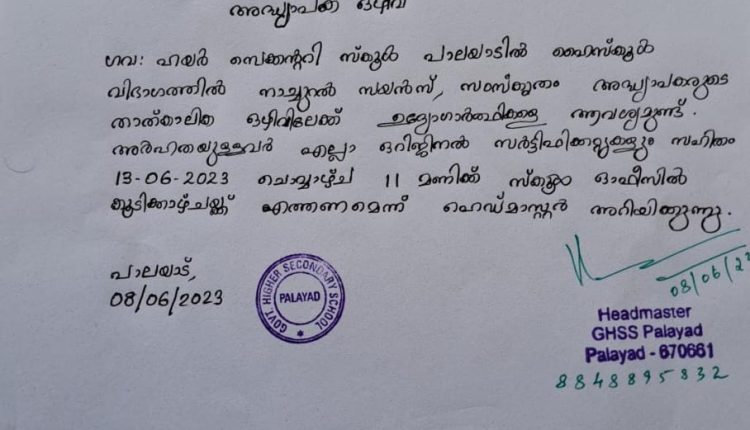 അദ്ധ്യാപക ഒഴിവ്
ഗവ: ഹയർ സെക്കന്ററി സ്കൂൾ പാലയാടിൽ ഹൈസ്കൂൾ
വിഭാഗത്തിൽ നാച്ചുറൽ സയൻസ്, സംസ്കൃതം അദ്ധ്യാപകരുടെ
താത്കാലിക ഒഴിവിലേക്ക് ഉദ്യോഗാർത്ഥികളെ ആവശ്യമുണ്ട്.
അർഹതയുള്ളവർ എല്ലാ ഒറിജിനൽ സർട്ടിഫിക്കറ്റുകളും സഹിതം
13-06-2023 ചൊവ്വാഴ്ച 11 മണിക്ക് സ്കൂൾ ഓഫീസിൽ
കൂടിക്കാഴ്ചയ്ക്ക് എത്തണമെന്ന് ഹെഡ്മാസ്റ്റർ അറിയിക്കുന്നു.
പാലയാട്,
08/06/2023
GOVT HIGHER SECONDARY SCHOOL
PALAYAD
08/06/23
Headmaster
GHSS Palayad
Palayad - 670661
8848895832